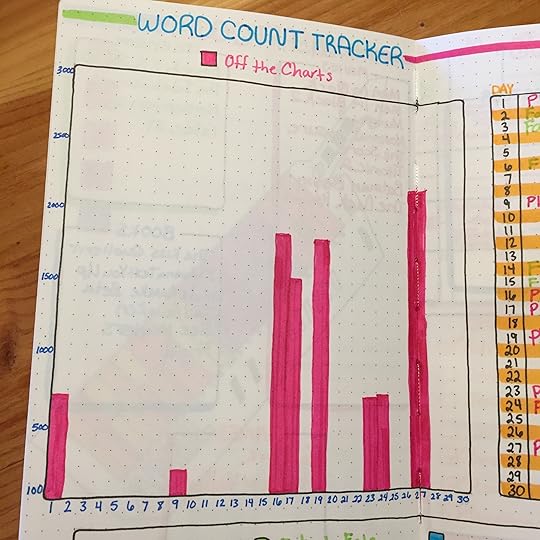 WORD COUNT TRACKER
Off the Charts
3000
2500
2000
1500
1000
500
100
1 2 3 4 5 6 7 8 9 10 11 12 13 14 15 16 17 18 19 20 21 22 23 24 25 26 27 28 29 30
DAY
1 P
2 Fa
3 Fa
4
5
6 F
7
8
9 Pl
10
11
12
13
14 F
15 F
16 P
17 P
18
19 Pl
20
21
22
23 P
24 F
25
26
27 P
28
29
30